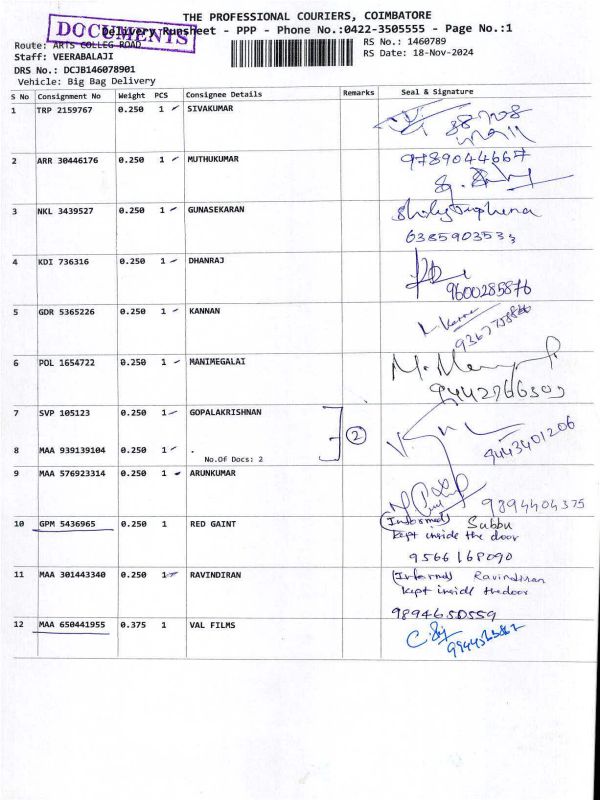 THE PROFESSIONAL COURIERS, COIMBATORE
DOCUMENTS
Delivery Runsheet - PPP - Phone No.:0422-3505555 - Page No.:1
Route: ARTS COLLEG ROAD
RS No.: 1460789
Staff: VEERABALAJI
RS Date: 18-Nov-2024
DRS No.: DCJB146078901
Vehicle: Big Bag Delivery
S No Consignment No Weight PCS Consignee Details Remarks Seal & Signature
1 TRP 2159767 0.250 1 SIVAKUMAR
2 ARR 30446176 0.250 1 MUTHUKUMAR 9789044667
3 NKL 3439527 0.250 1 GUNASEKARAN
6385903533
4 KDI 736316 0.250 1 DHANRAJ
9600285876
5 GDR 5365226 0.250 1 KANNAN
6 POL 1654722 0.250 1 MANIMEGALAI
7 SVP 105123 0.250 1 GOPALAKRISHNAN
2
9443401206
8 MAA 939139104 0.250 1 .
No.Of Docs: 2
9 MAA 576923314 0.250 1 ARUNKUMAR
9894404375
10 GPM 5436965 0.250 1 RED GAINT (Informed) Subbu
kept inside the door
9566168090
11 MAA 301443340 0.250 1 RAVINDIRAN (Informd) Ravindiran
kept inside thedoor
9894650559
12 MAA 650441955 0.375 1 VAL FILMS